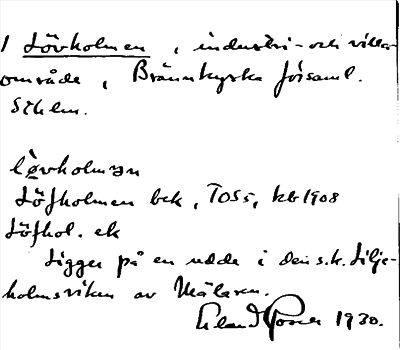 1 Lövholmen, industri- och villa-
område, Brännkyrka församl.
Sthlm.
lø̀vholmən
Löfholmen bek, TOS5, kb 1908
Löfhol. ek
Ligger på en udde i den s.k. Lilje-
holmsviken av Mälaren.
1930.